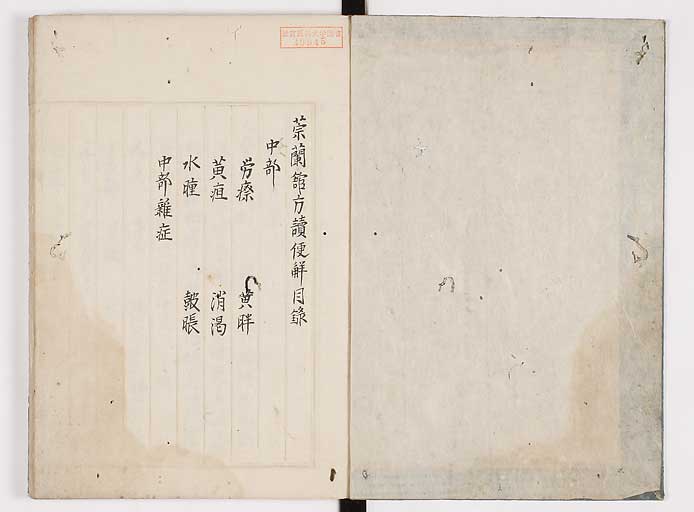 蘭館方讀便解目錄
中部
労瘵 黄胖
黄疸 消渇
水腫 皷脹
中部雜症